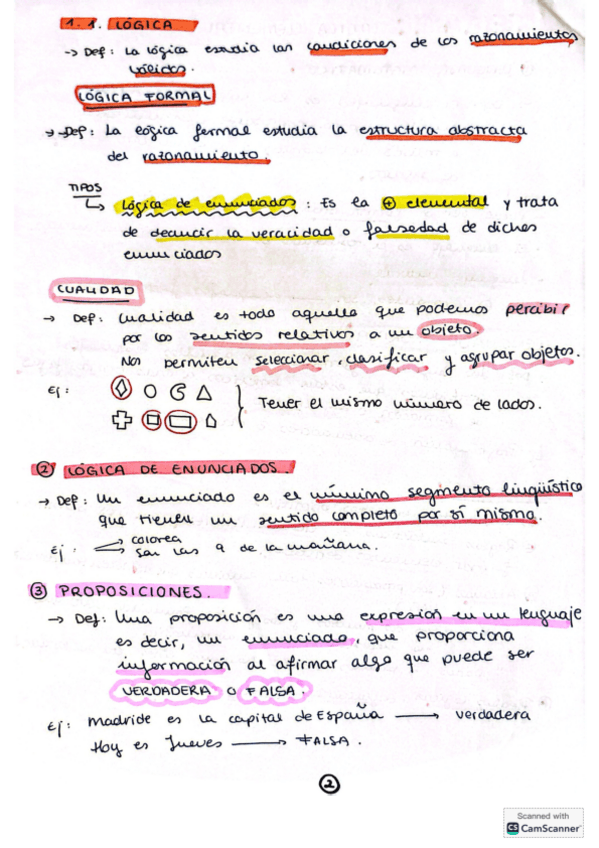 1.1. LÓGICA
→ Def: La lógica estudia las condiciones de los razonamientos
válidos.
LÓGICA FORMAL
→ Def: La lógica formal estudia la estructura abstracta
del razonamiento.
TIPOS
↳ Lógica de enunciados: Es la ⊕ elemental y trata
de deducir la veracidad o falsedad de dichos
enunciados
CUALIDAD
→ Def: Cualidad es todo aquello que podemos percibir
por los sentidos relativos a un objeto.
Nos permiten seleccionar, clasificar y agrupar objetos.
Ej:
Tener el mismo número de lados.
② LÓGICA DE ENUNCIADOS.
→ Def: Un enunciado es el mínimo segmento lingüístico
que tienen un sentido completo por sí mismo.
Ej: → colorea
→ Son las 9 de la mañana.
③ PROPOSICIONES.
→ Def: Una proposición es una expresión en un lenguaje
es decir, un enunciado, que proporciona
información al afirmar algo que puede ser
VERDADERA O FALSA.
Ej: Madride es la capital de España → verdadera
Hoy es Jueves → FALSA.
②
Scanned with
CS CamScanner